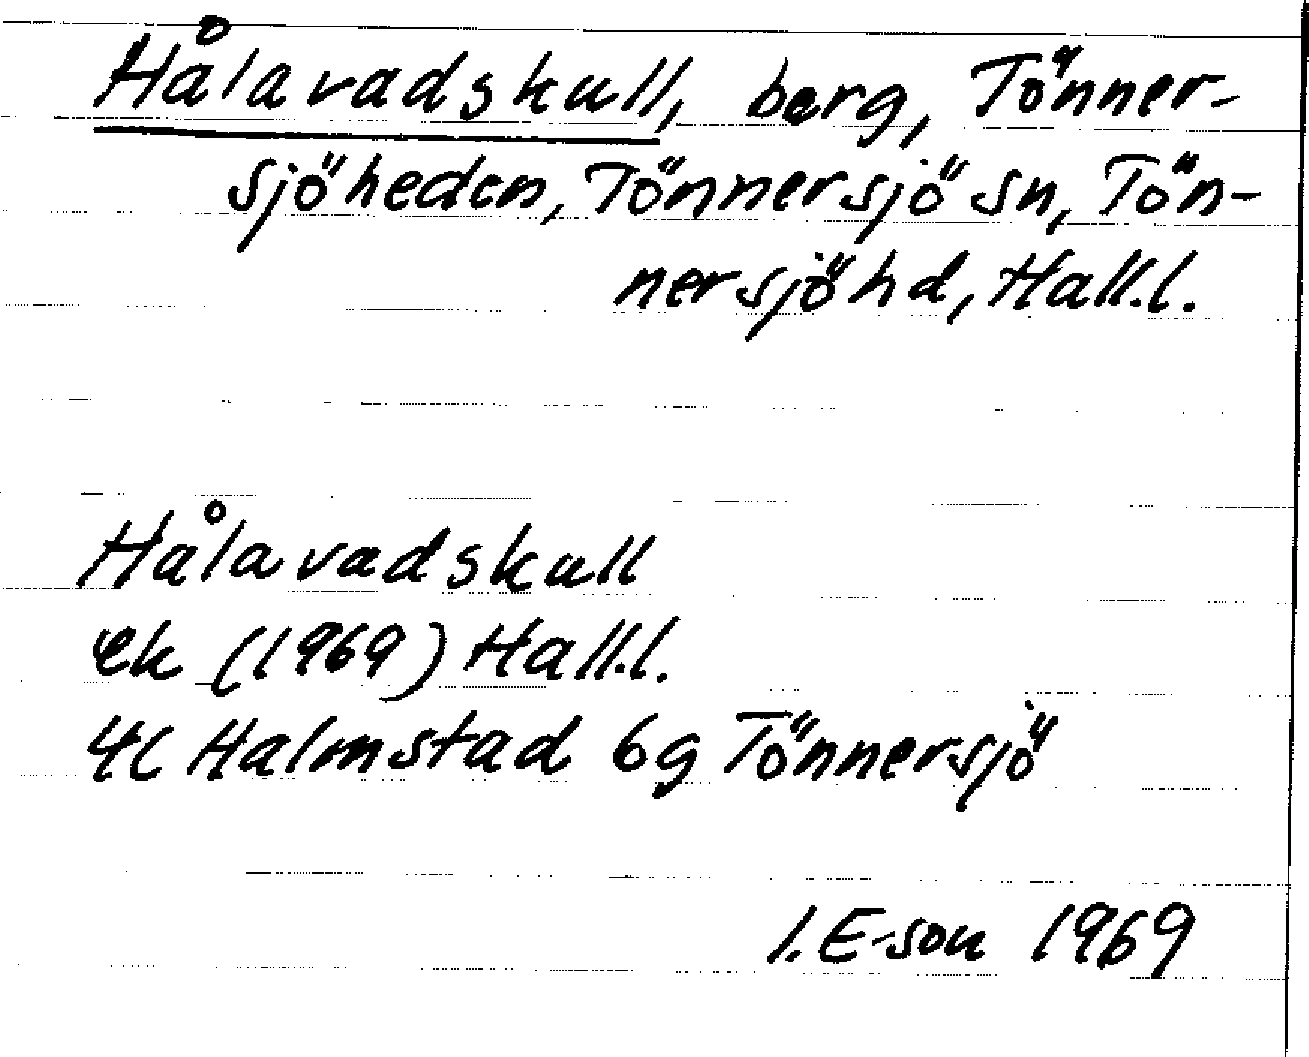 Hålavadskull, berg, Tönner-
sjöheden, Tönnersjö sn, Tön-
nersjö hd, Hall.l.
Hålavadskull
ek (1969) Hall.l.
4C Halmstad 6g Tönnersjö
I. E-son 1969